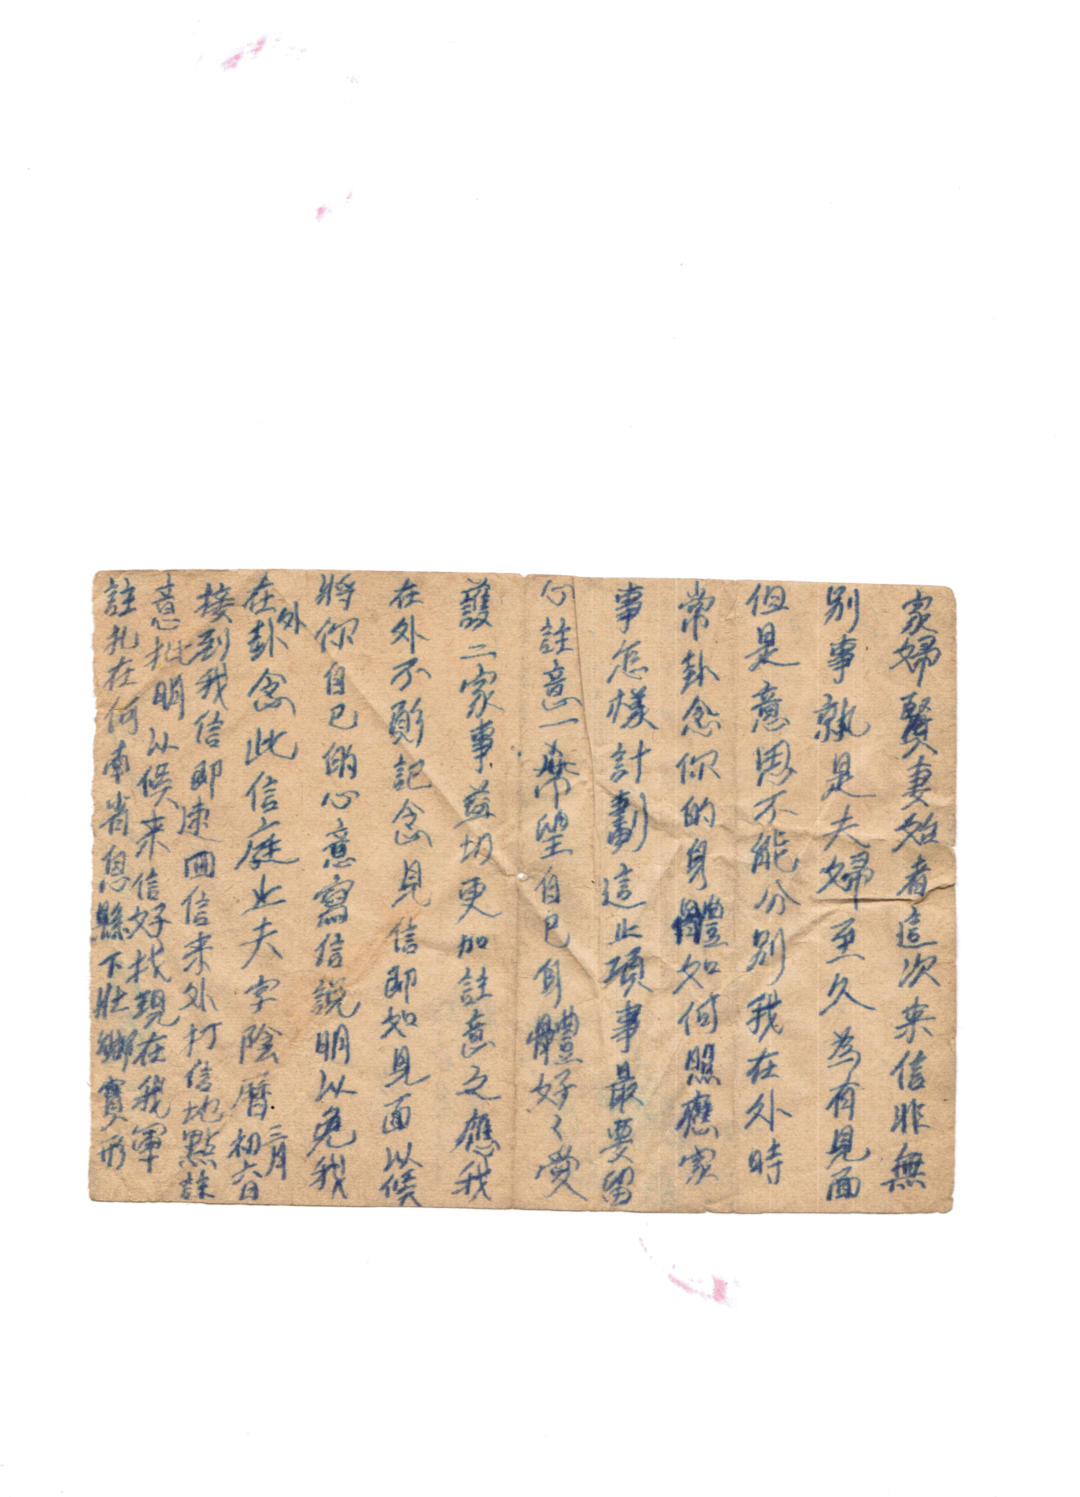 家婦賢妻始者這次来信非無
別事孰是夫婦至久為有見面
但是意思不能分別我在外時
常卦念你的身體如何照應家
事怎樣計劃這止項事最要留
心註意一希望自己身體好〻愛
護二家事益切更加註意之應我
在外不
記念見信即如見面以候
將你自己的心意寫信説明以免我
在外卦念此信庭止夫字陰曆三月初六日
接到我信即速囬信来外打信地點註
意批明以候来信好找現在我軍
註扎在何南省息縣下壯鄉寶形